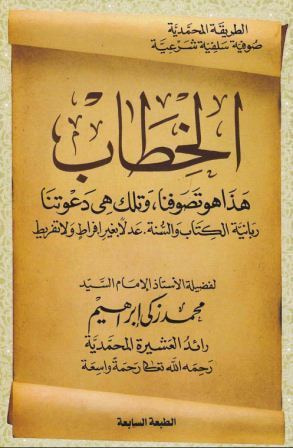 الطريقة المحمدية
صوفية سلفية شرعية
الخطاب
هذا هو تصوفنا، وتلك هى دعوتنا
ربانية الكتاب والسنة. عدلًا بغير إفراط ولا تفريط
لفضيلة الأستاذ الإمام السيد
محمد زكى إبراهيم
رائد العشيرة المحمدية
رحمه الله تعالى رحمة واسعة
الطبعة السابعة